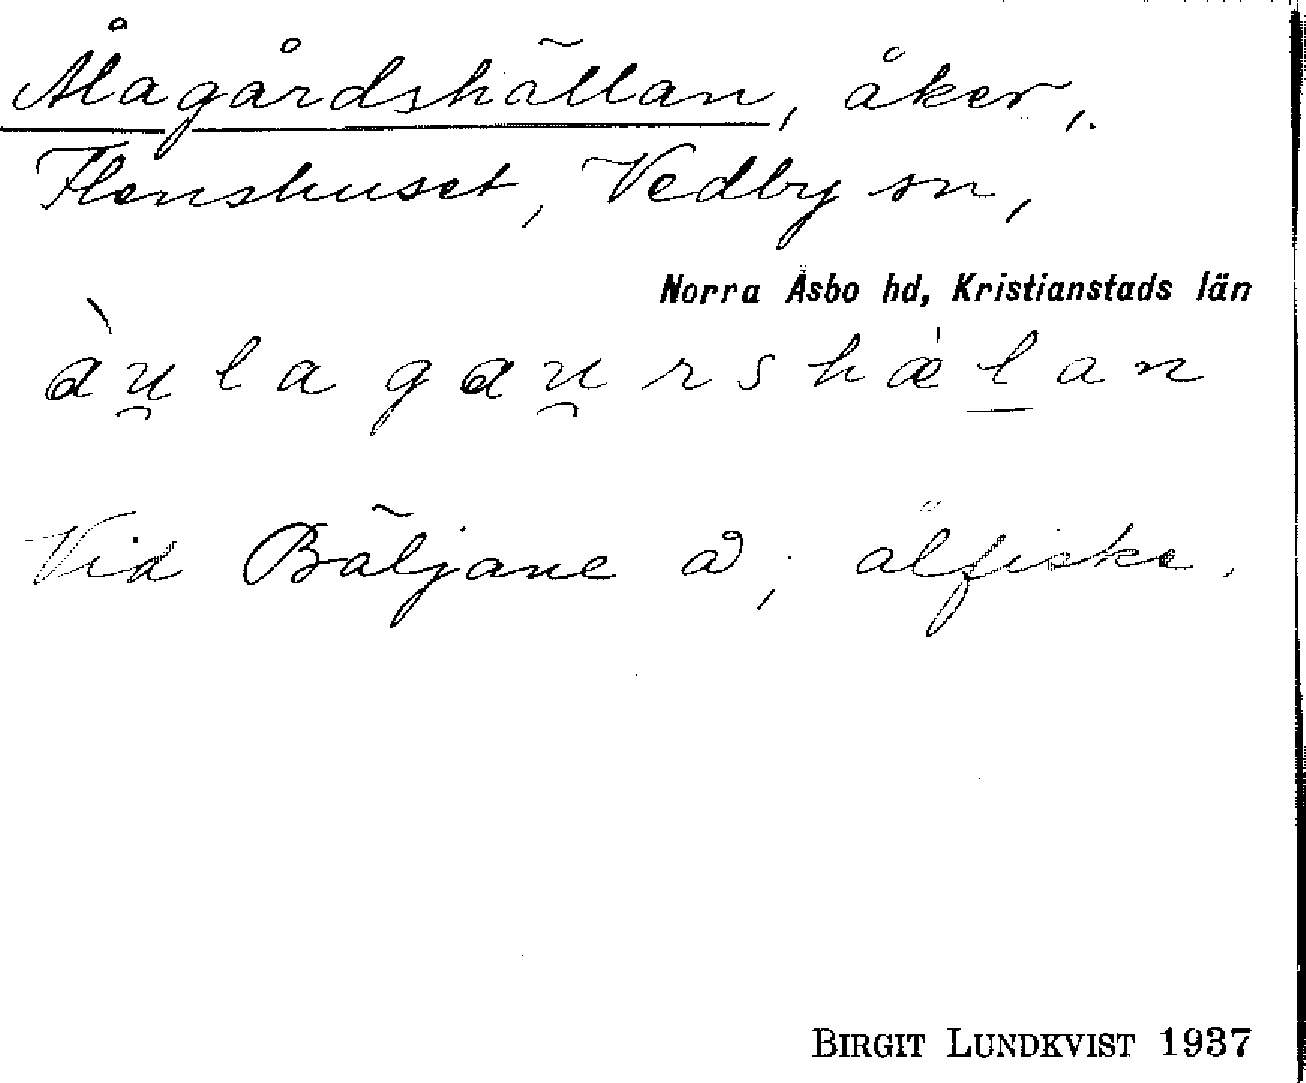 Ålagårdshällan, åker,.
Flenshuset, Vedby sn,
Norra Åsbo hd, Kristianstads län
àu̯lagau̯rshæ̀l̲an
Vid Bäljane å; ålfiske.
BIRGIT LUNDKVIST 1937